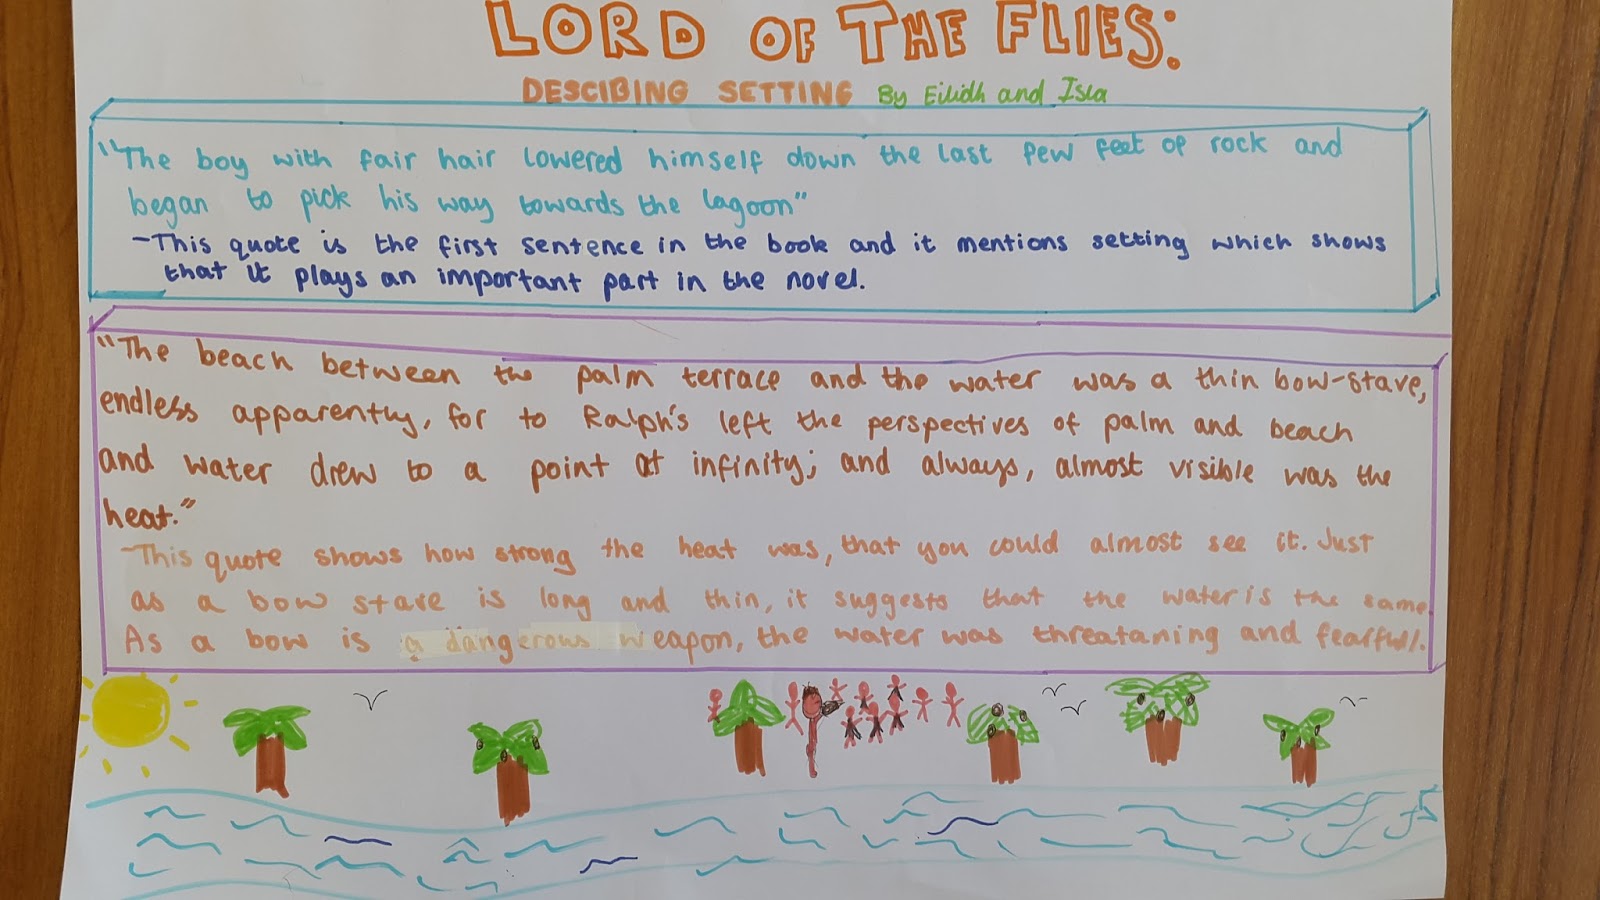 LORD OF THE FLIES:
DESCIBING SETTING By Eilidh and Isla
"The boy with fair hair lowered himself down the last few feet of rock and
began to pick his way towards the lagoon"
-This quote is the first sentence in the book and it mentions setting which shows
that it plays an important part in the novel.
"The beach between the palm terrace and the water was a thin bow-stave,
endless apparently, for to Ralph's left the perspectives of palm and beach
and water drew to a point at infinity; and always, almost visible was the
heat."
-This quote shows how strong the heat was, that you could almost see it. Just
as a bow stave is long and thin, it suggests that the water is the same.
As a bow is a dangerous weapon, the water was threataning and fearful.